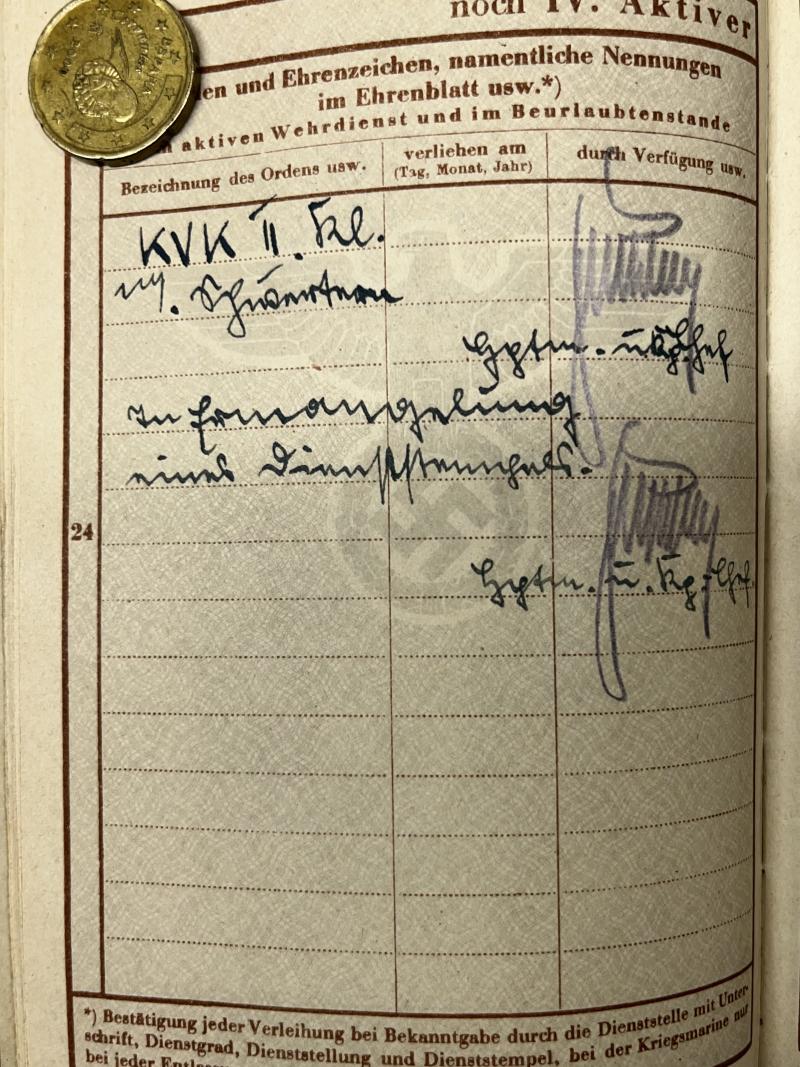 noch IV. Aktiver
den und Ehrenzeichen, namentliche Nennungen
im Ehrenblatt usw.*)
m aktiven Wehrdienst und im Beurlaubtenstande
Bezeichnung des Ordens usw.
verliehen am
(Tag, Monat, Jahr)
durch Verfügung usw.
KVK II. Kl.
m. Schwertern
Hptm. u. Kp. Chef
In Ermangelung
eines Dienststempels.
24
Hptm. u. Kp.-Chef.
*) Bestätigung jeder Verleihung bei Bekanntgabe durch die Dienststelle mit Unter-
schrift, Dienstgrad, Dienststellung und Dienststempel, bei der Kriegsmarine nur
bei jeder